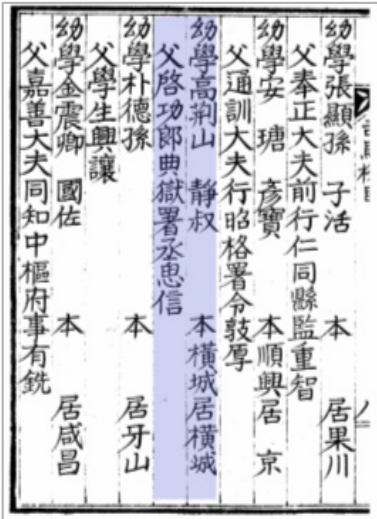 幼學張顯孫 子活 本 居果川
父奉正大夫前行仁同縣監重智
幼學安 瑭 彦寶 本順興居 京
父通訓大夫行昭格署令敦厚
幼學高荊山 靜叔 本橫城居橫城
父啓功郎典獄署丞思信
幼學朴德孫 本 居牙山
父學生興讓
幼學金震卿 國佐 本 居咸昌
父嘉善大夫同知中樞府事有銑